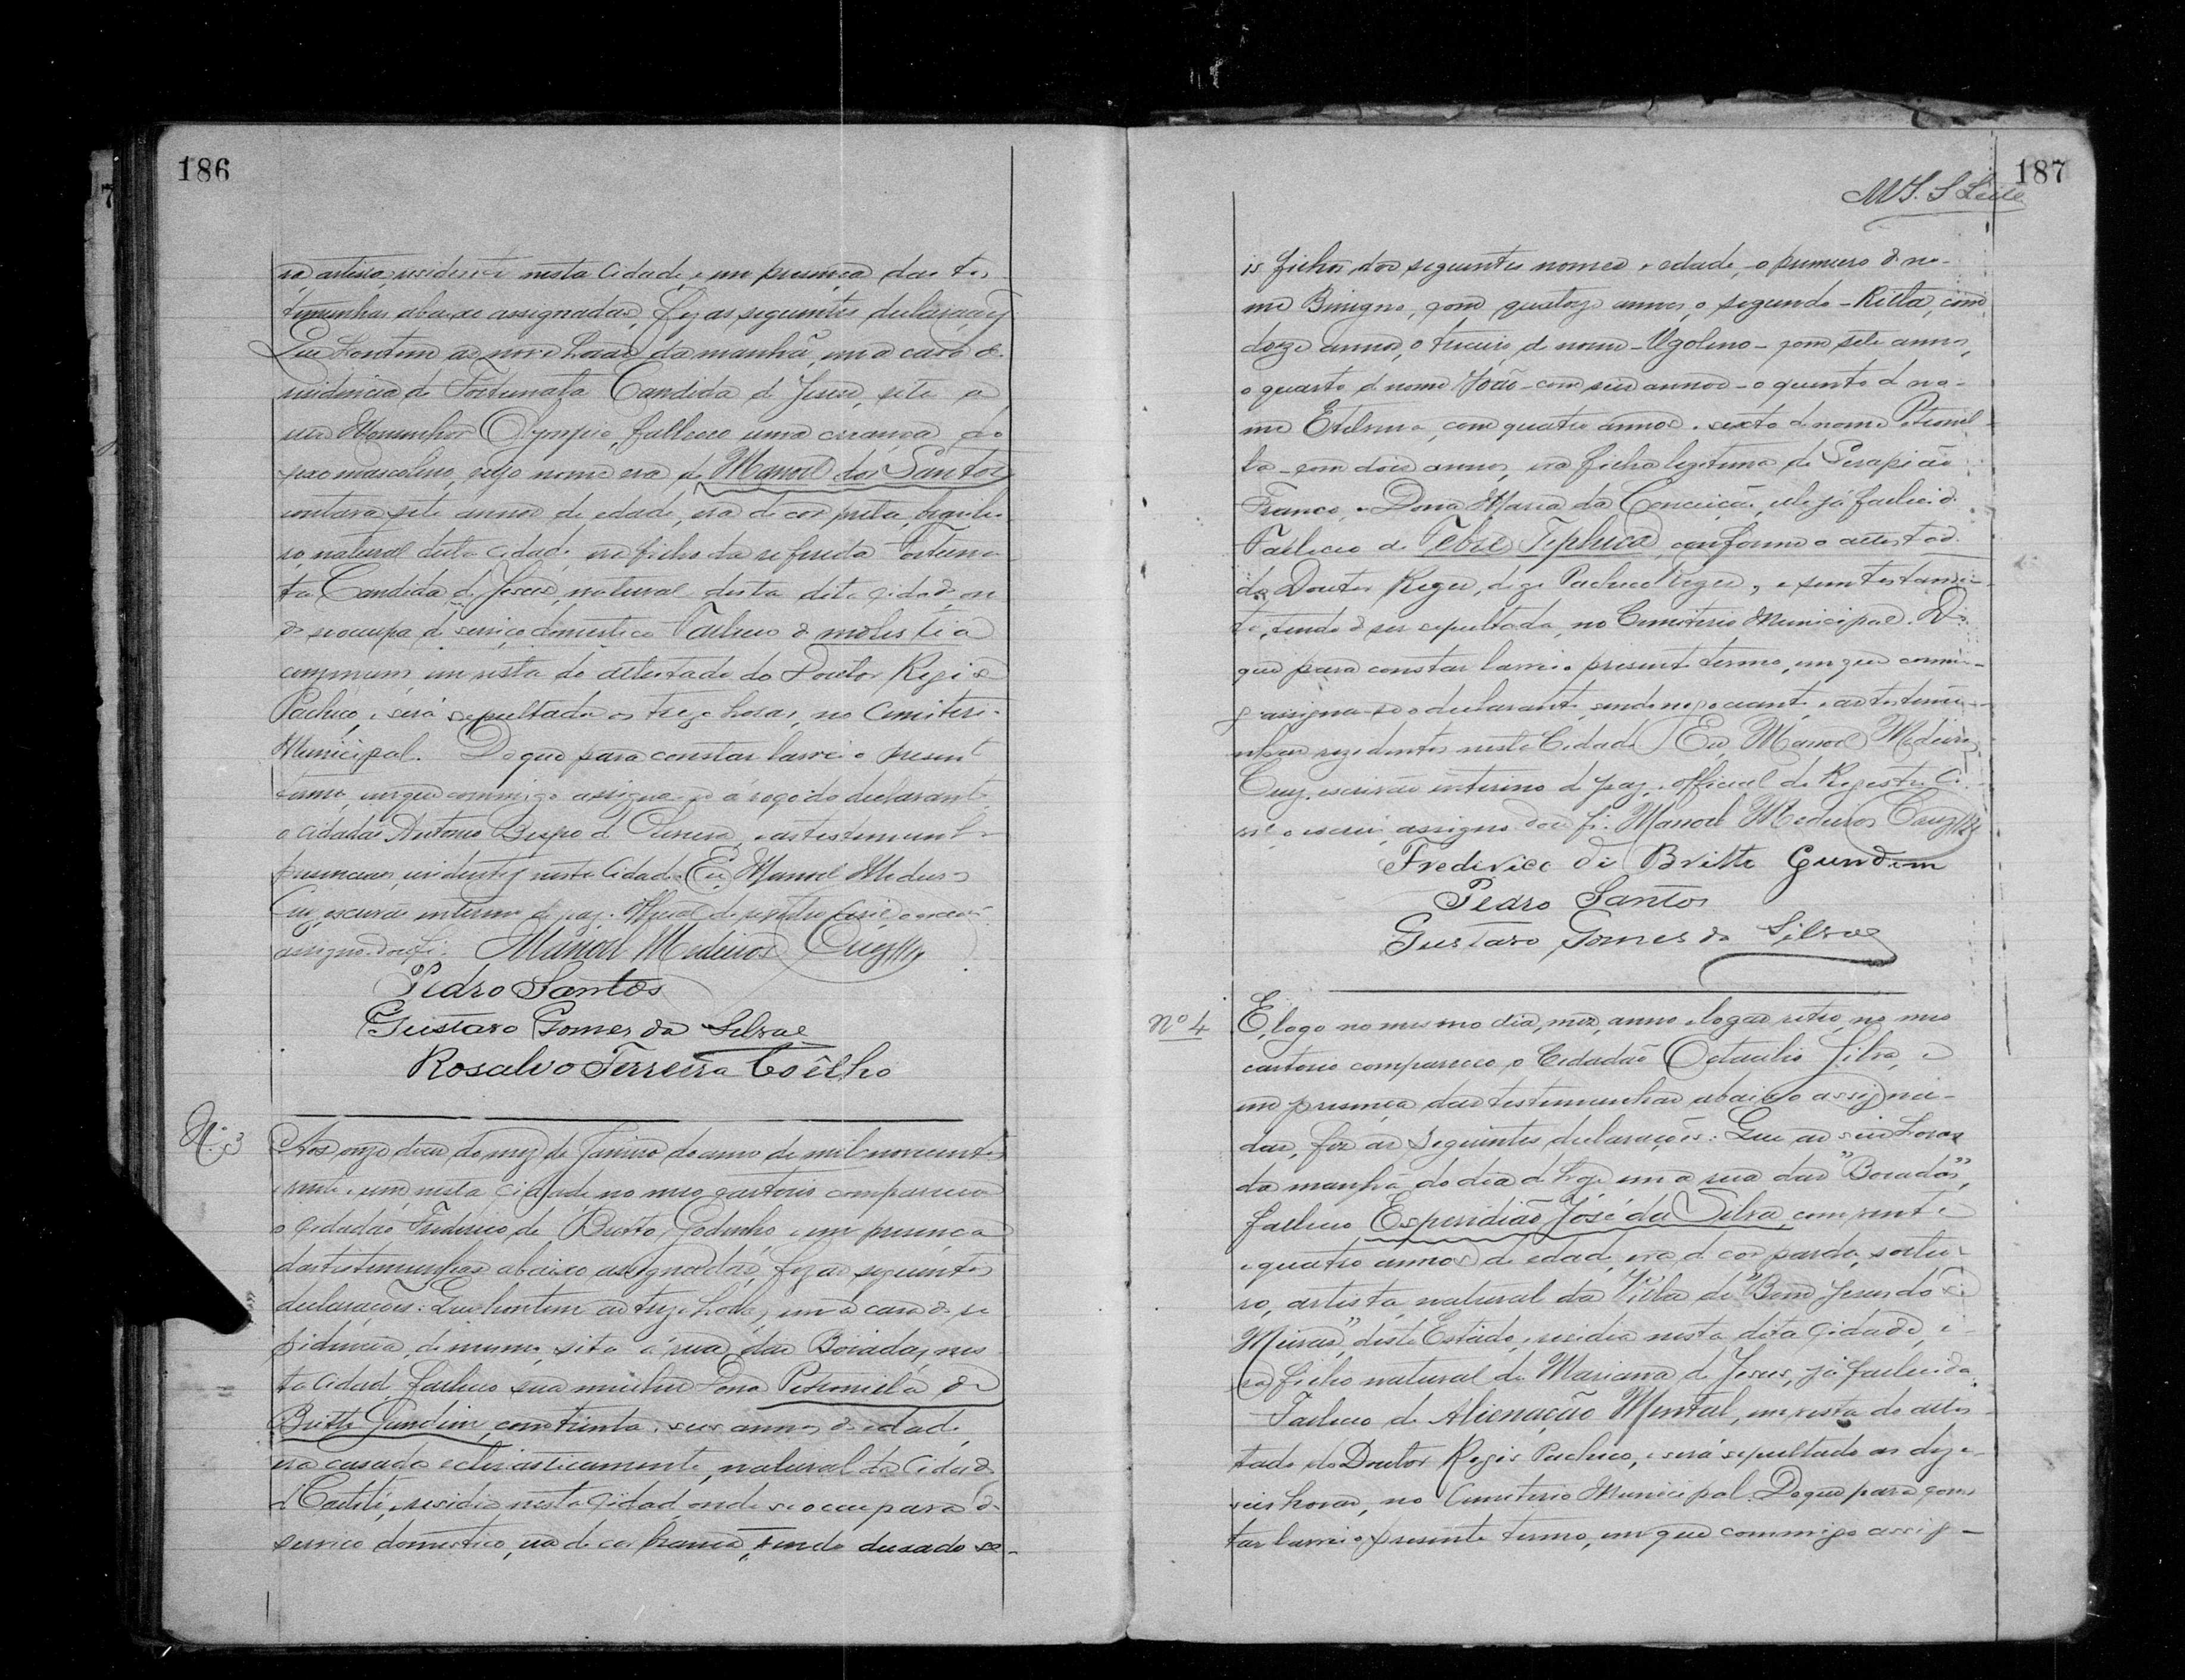 186
ro, artista, residente nesta Cidade, e em presença das tes-
timunhas abaixo assignadas, fez as seguintes declarações
Que hontem as nove horas da manhã, em a casa de
residencia de Fortunata Candida de Jesus, sita a
rua Monsenhor Olympio, falleceo uma creança do
sexo masculino, cujo nome era de Manoel dos Santos
contava sete annos de edade, era de cor preta, brazilei-
ro, natural desta Cidade, era filho da referida Fortuna-
ta Candida de Jesus, natural desta dita Cidade, on
de se occupa de serviço domestico Falleceo de molestia
commum, em vista do attestado do Doutor Regis
Pacheco, e será sepultado as treze horas, no Cemiterio
Municipal. Do que para constar lavrei o presente
termo, em que commigo assigna-se á rogo do declarante
o cidadão Antonio Bispo de Oliveira, e as testemunhas
presenciaes, residentes nesta Cidade. Eu, Manoel Medeiros
Cruz, escrivão interino de paz, e Official de registro Civil, o escrevi
assigno. dou fé. Manoel Medeiros Cruz
Pedro Santos
Gustavo Gomes da Silva
Rosalvo Ferreira Coêlho
N.º 3
Aos onze dias do mez de Janeiro do anno de mil novecentos
e vinte e um, nesta cidade, no meo cartorio compareceo
o cidadão Frederico de Britto Godinho e em presença
das testemunhas abaixo assignadas, fez as seguintes
declarações: Que hontem as treze horas, em a casa de re
sidencia, de numero, sita á rua das Boiadas, nes
ta Cidade falleceo sua mulher Dona Petronilla de
Britto Gundim, com trinta e seis annos de edade,
era casada eclesiasticamente, natural da Cidade
de Caetité, e residia nesta Cidade, onde se occupava de
serviço domestico, era de cor branca, tendo deixado se-
187
M S. S Leite
is filhos, dos seguintes nomes e edade, o primeiro de no-
me Binigno, com quatorze annos, o segundo - Ritta, com
doze annos, o terceiro, de nome - Ugolino - com sete annos,
o quarto de nome João - com seis annos - o quinto de no-
me Etelvina, com quatro annos e sexto de nome Petronil-
la - com dois annos, era filha legitima de Serapião
Franco, e Dona Maria da Conceição, elle já fallecido.
Falleceo de Febre Typhica, conforme o attestado
do Doutor Reger, digo Pacheco Reges, e sem testamen-
to, tendo de ser sepultada, no Cemiterio Municipal. Do
que para constar lavrei o presente termo, em que commi-
go assigna-se o declarante, sendo negociante, e as testemu-
nhas rezidentes nesta Cidade. Eu, Manoel Medeiros
Cruz, escrivão interino de paz, e Official do Registro Ci-
vil, o escrevi, assigno dou fé. Manoel Medeiros Cruz
Frederico de Britto Gundim
Pedro Santos
Gustavo Gomes da Silva
Nº 4
E, logo no mesmo dia, mez, anno e logar retro, no meo
cartorio compareceo o Cidadão Octacilio Silva, e
em presença das testemunhas abaixo assigna-
das, fez as seguintes declarações: Que as seis horas
da manhã do dia de hoje em a rua das "Boiadas",
falleceo Esperidião José da Silva, com vinte
e quatro annos de edade, era de cor parda, soltei-
ro, artista, natural da Villa de "Bom Jesus dos
Meiras", deste Estado, e residia nesta dita Cidade, e
era filho natural de Mariana de Jesus, já fallecida.
Falleceo de Alienação Mental, em vista do attes-
tado do Doutor Regis Pacheco, e será sepultado as deze-
seis horas, no Cemiterio Municipal. Do que para cons
tar lavrei o presente termo, em que commigo assig-